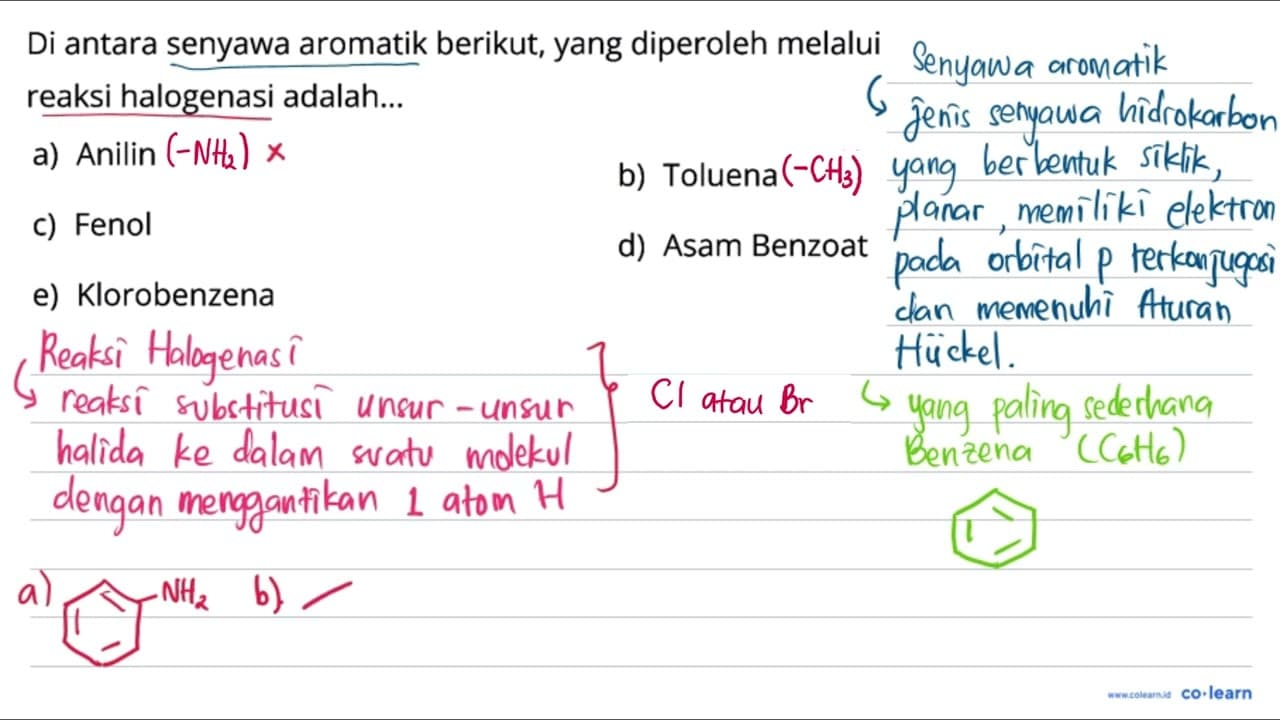 Di antara senyawa aromatik berikut, yang diperoleh melalui
reaksi halogenasi adalah...
a) Anilin (-NH₂) ×
b) Toluena (-CH₃)
c) Fenol
d) Asam Benzoat
e) Klorobenzena
Senyawa aromatik
jenis senyawa hidrokarbon
yang berbentuk siklik,
planar, memiliki elektron
pada orbital p terkonjugasi
dan memenuhi Aturan
Hückel.
yang paling sederhana
Benzena (C₆H₆)
Reaksi Halogenasi
reaksi substitusi unsur-unsur
halida ke dalam suatu molekul
dengan menggantikan 1 atom H
Cl atau Br
a) NH₂ b)
www.colearn.id co·learn